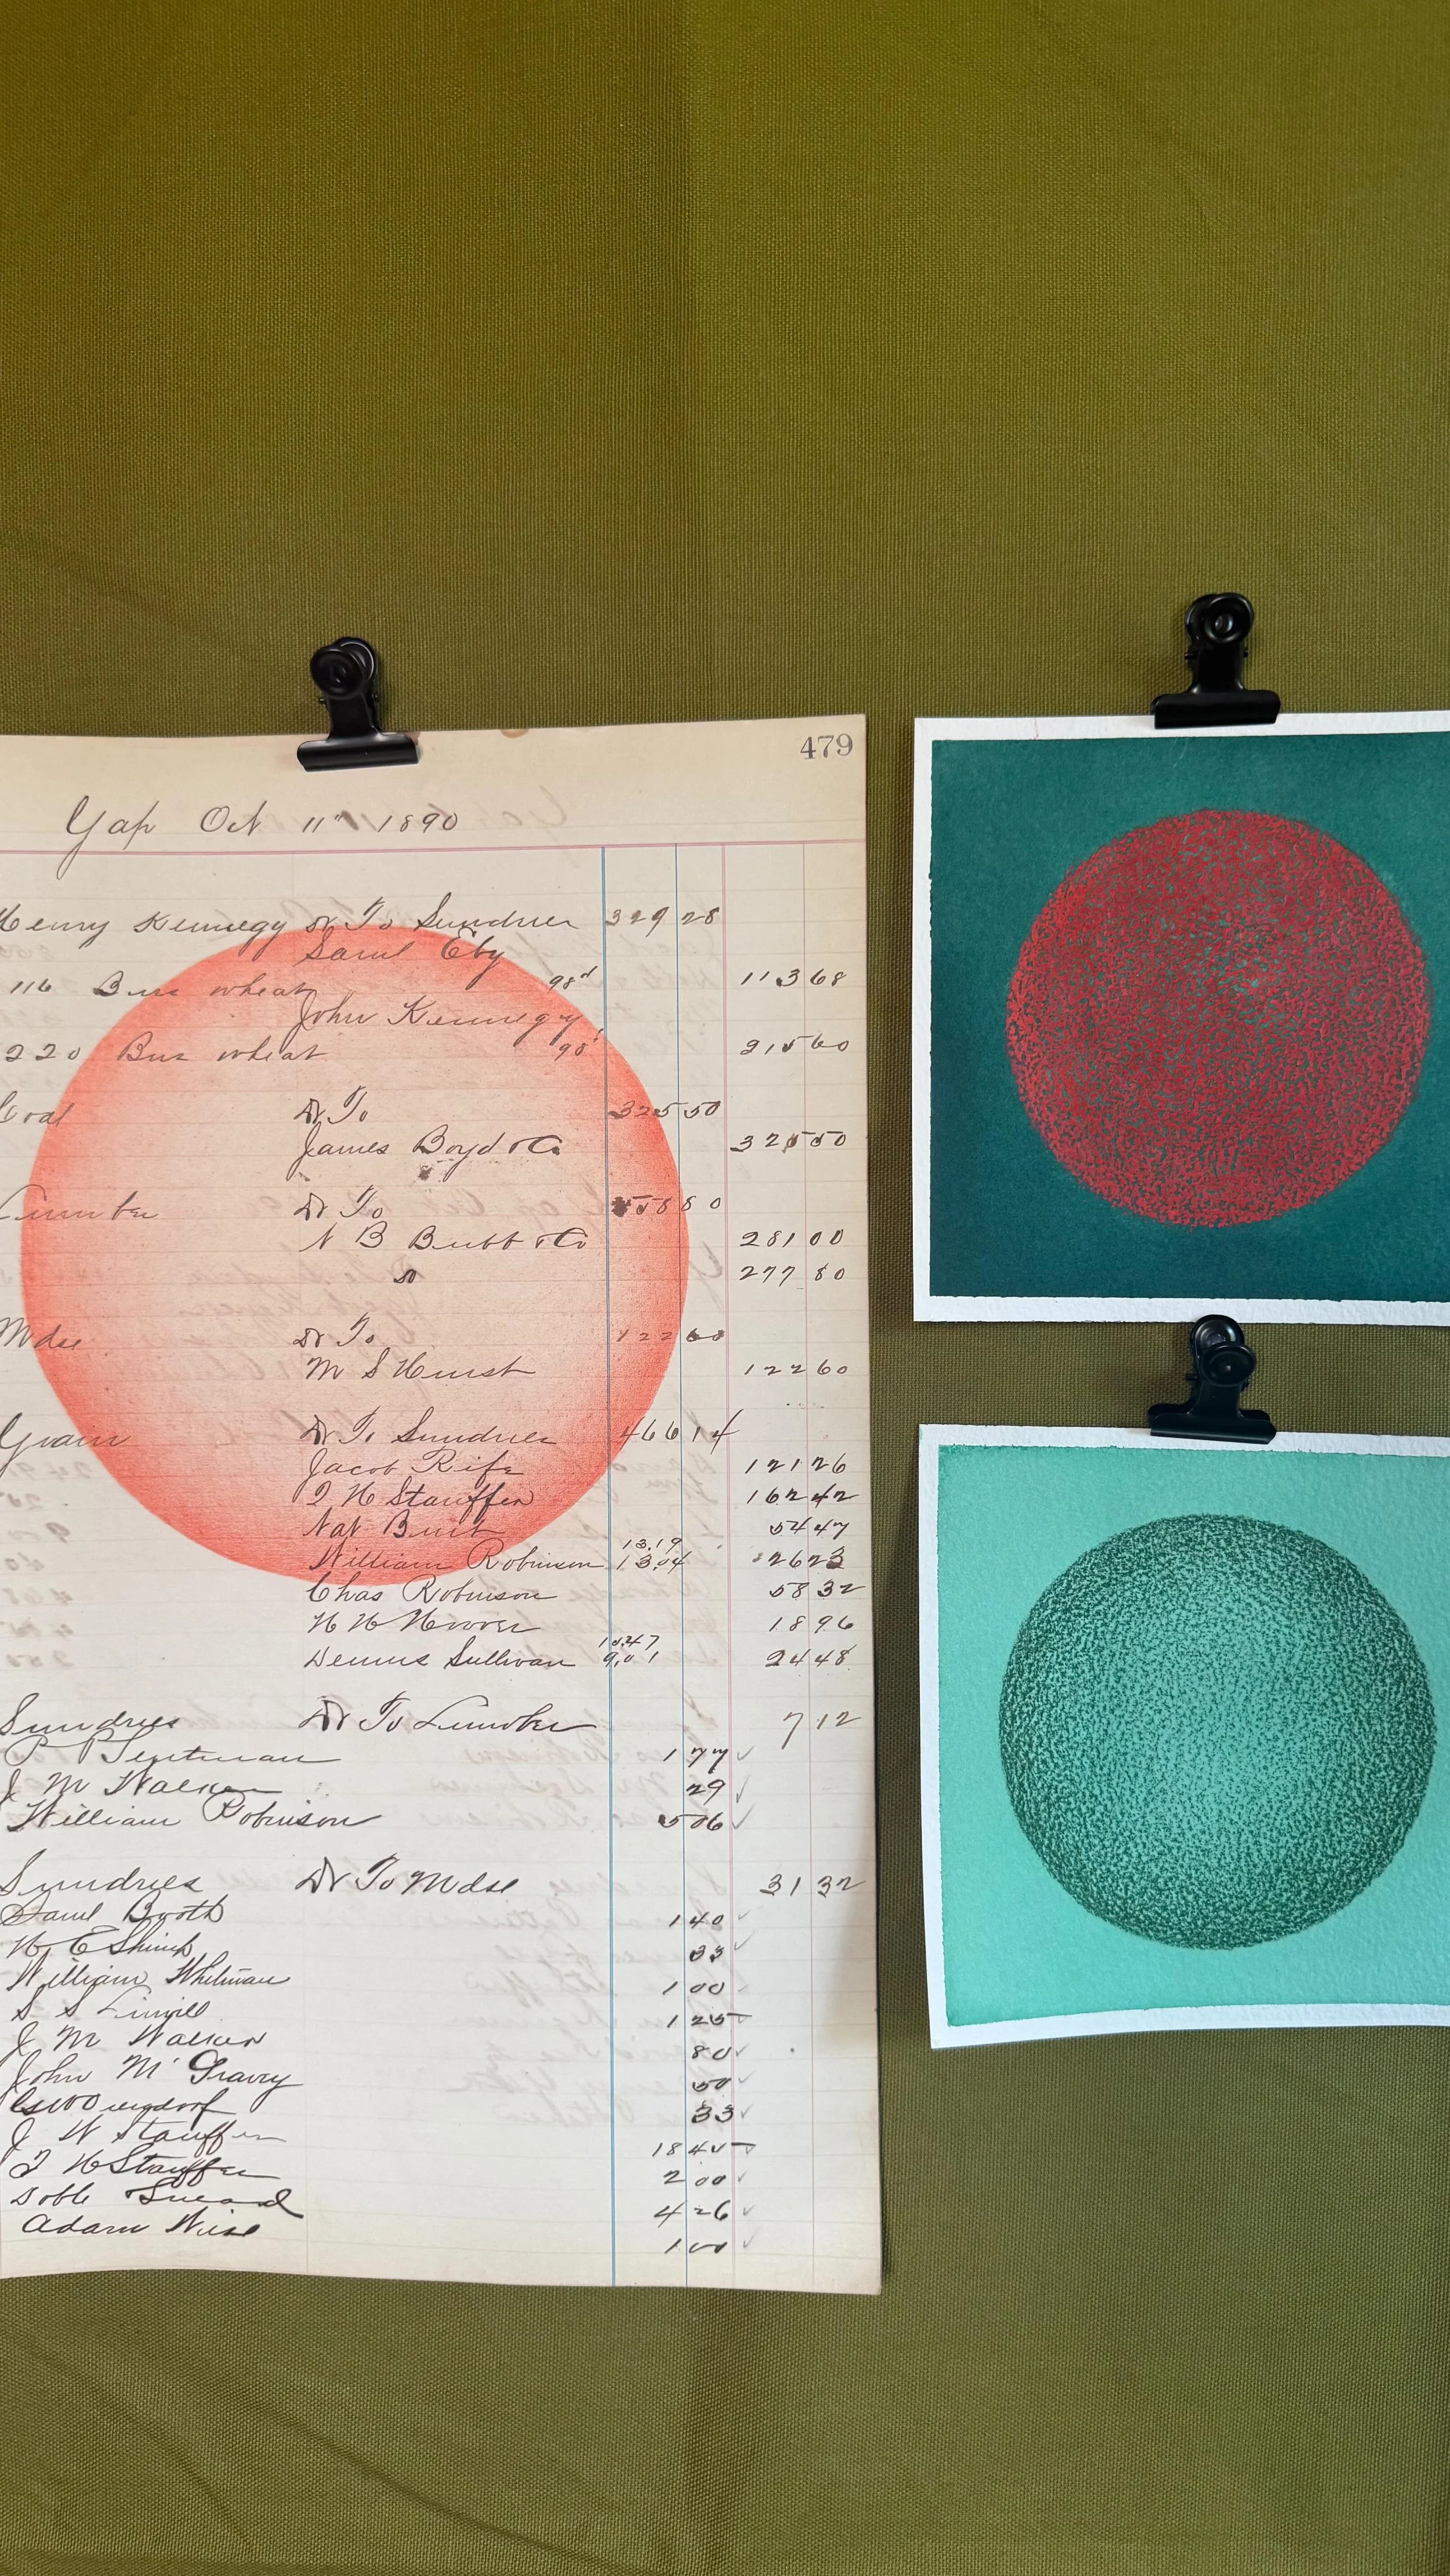 479
Gap Oct 11" 1890
Henry Kennegy Dr To Sundries 329 28
Saml Eby
116 Bus wheat 98 113 68
John Kennegy
220 Bus wheat 98 215 60
Coal Dr To 325 50
James Boyd & Co 325 50
Lumber Dr To 558 80
N B Bubb & Co 281 00
Do 277 80
Mdse Dr To 122 60
M S Hurst 122 60
Grain Dr To Sundries 466 14
Jacob Rife 121 26
I H Stauffer 162 42
Nat Burt 54 47
13.19
William Robinson 13.04 26 23
Chas Robinson 58 32
H H Hoover 18 96
15.47
Dennis Sullivan 9.01 24 48
Sundries Dr To Lumber 7 12
P P Sentman 1 77
J M Walker 29
William Robinson 5 06
Sundries Dr To Mdse 31 32
Saml Booth 1 40
H E Shimp 33
William Whitman 1 00
S S Linvill 1 25
J M Walker 80
John McGravy 50
33
J W Stauffer 18 45
I H Stauffer 2 00
4 26
Adam Wise 1 00